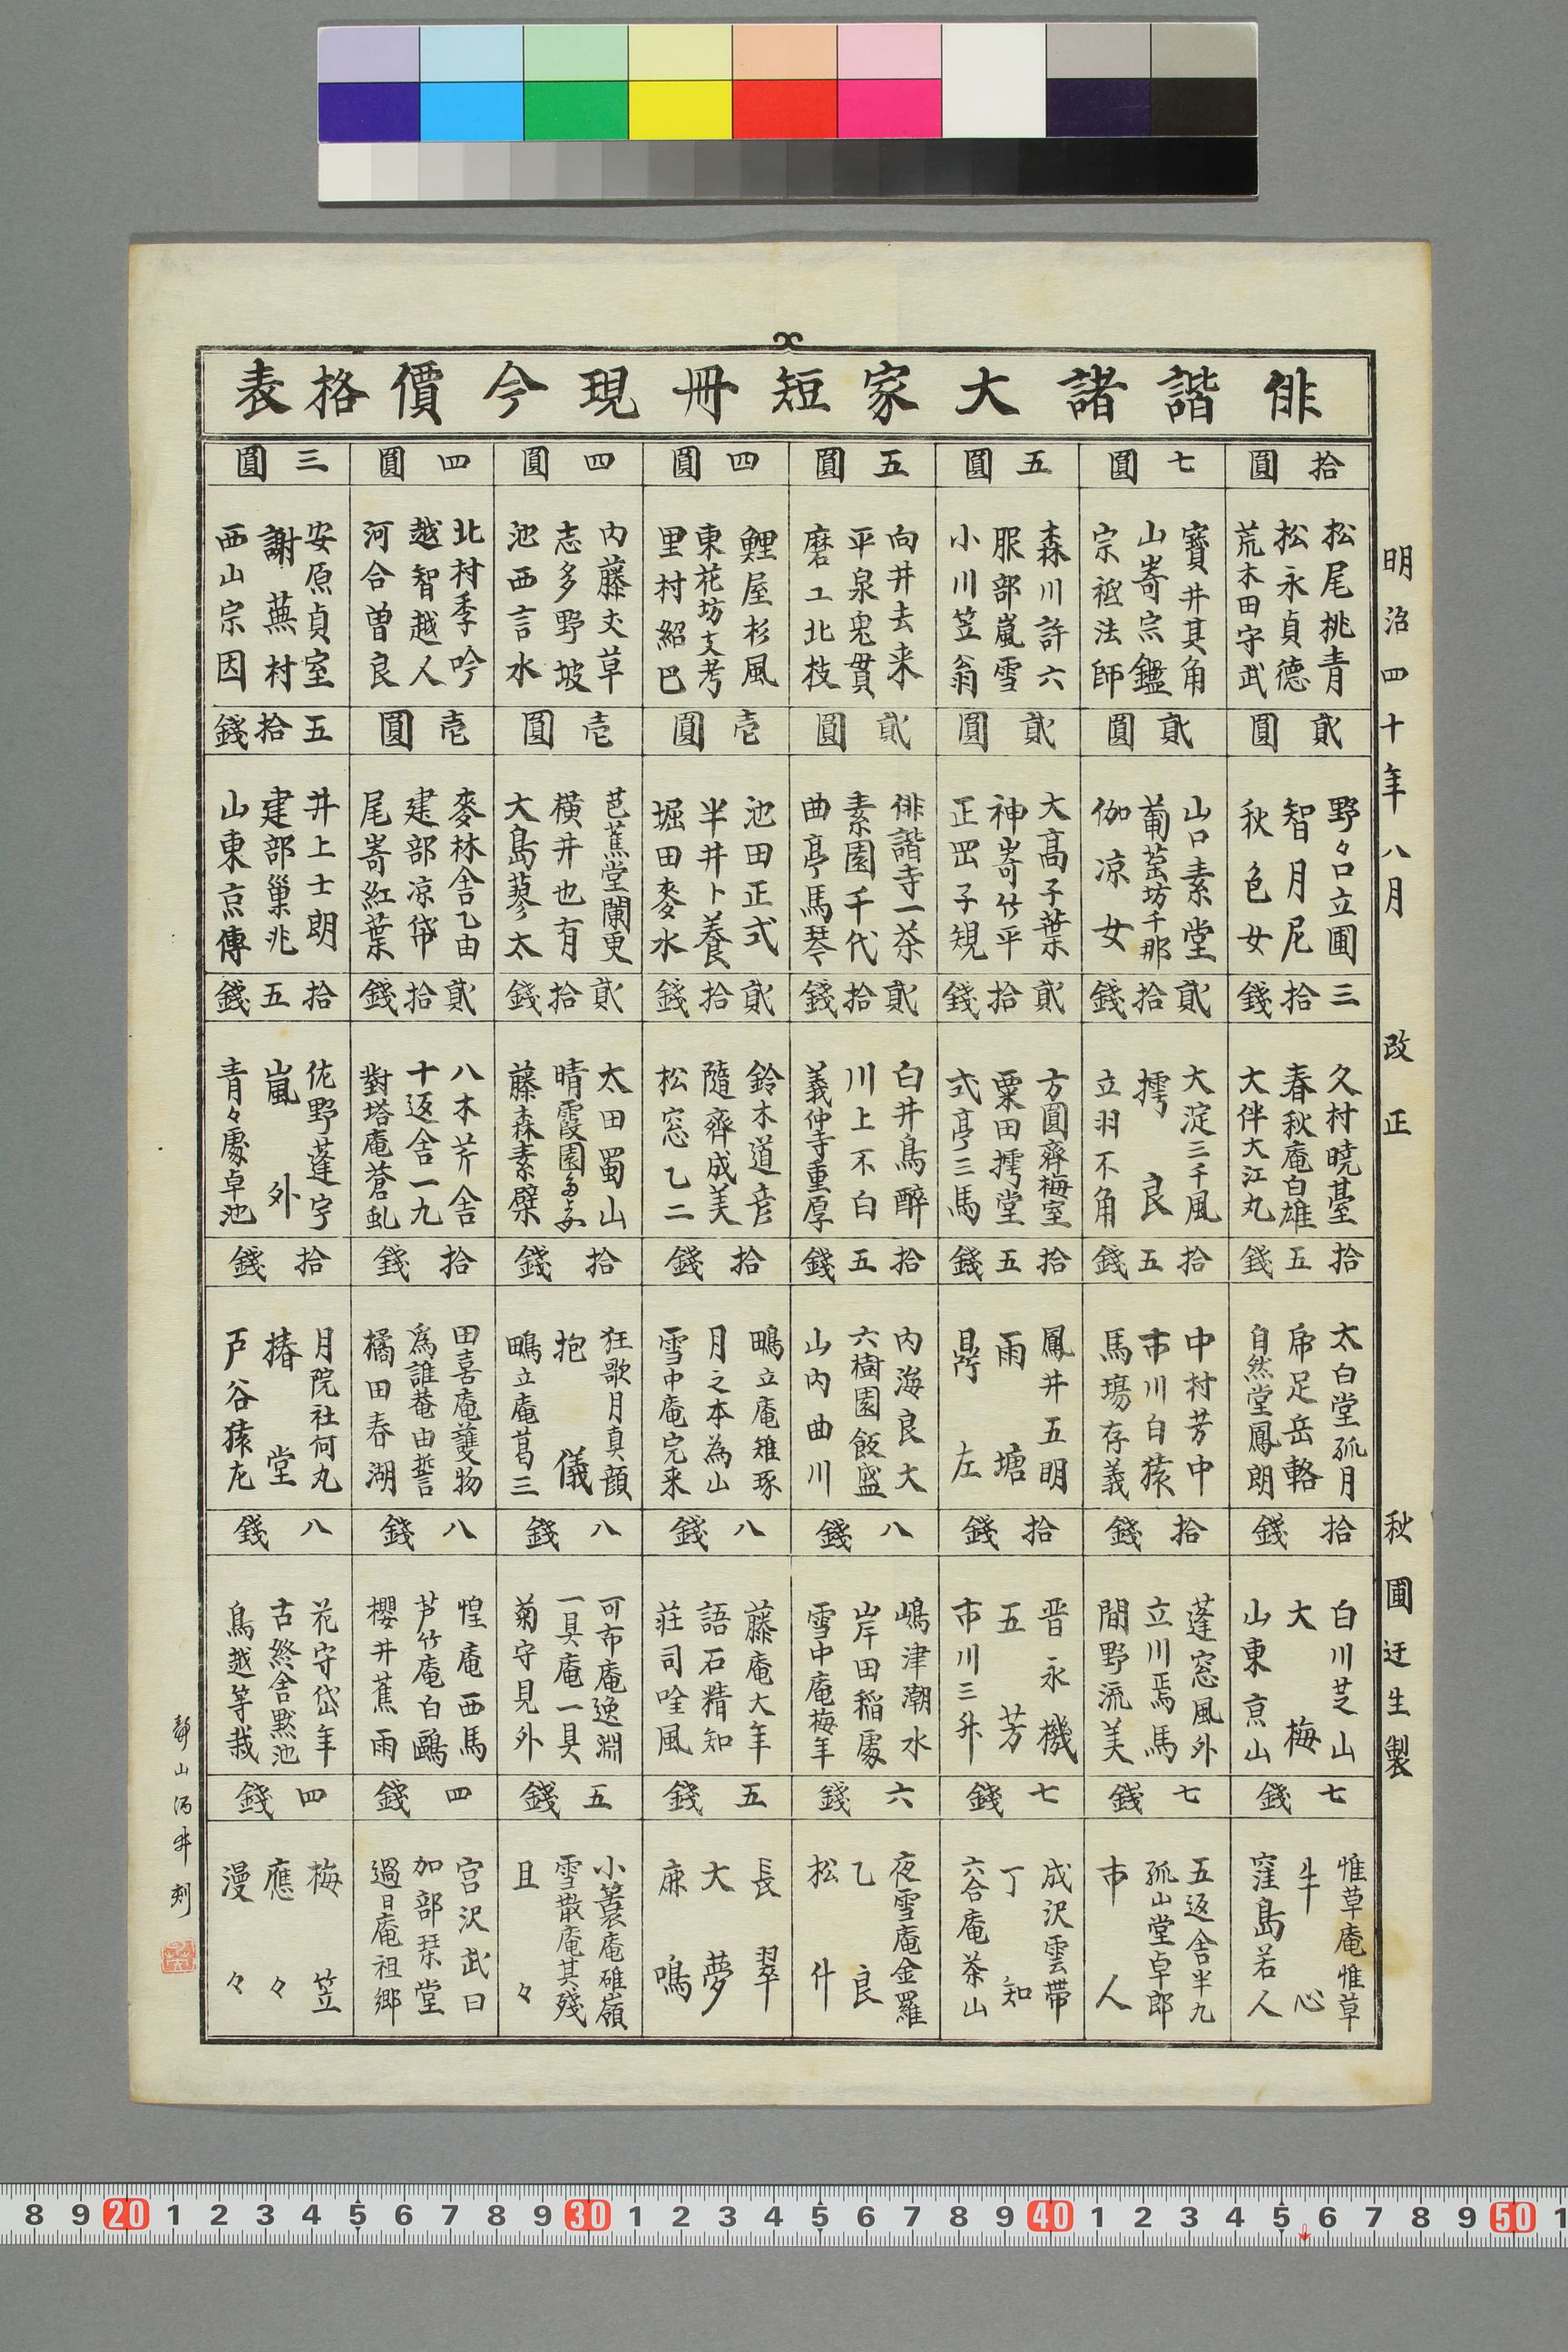 俳諧諸大家短冊現今價格表
明治四十年八月 改正 秋圃迂生製
拾圓
松尾桃青
松永貞德
荒木田守武
七圓
寶井其角
山嵜宗鑑
宗祗法師
五圓
森川許六
服部嵐雪
小川笠翁
五圓
向井去来
平泉鬼貫
磨工北枝
四圓
鯉屋杉風
東花坊支考
里村紹巴
四圓
内藤丈草
志多野坡
池西言水
四圓
北村季吟
越智越人
河合曽良
三圓
安原貞室
謝蕪村
西山宗因
貳圓
野々口立圃
智月尼
秋色女
貳圓
山口素堂
葡萄坊千那
伽凉女
貳圓
大高子葉
神嵜竹平
正岡子規
貳圓
俳諧寺一茶
素園千代
曲亭馬琴
壱圓
池田正式
半井卜養
堀田麥水
壱圓
芭蕉堂闌更
横井也有
大島蓼太
壱圓
麥林舎乙由
建部凉帒
尾嵜紅葉
五拾錢
井上士朗
建部巢兆
山東京傳
三拾錢
久村曉臺
春秋庵白雄
大伴大江丸
貳拾錢
大淀三千風
樗良
立羽不角
貳拾錢
方圓齊梅室
粟田樗堂
式亭三馬
貳拾錢
白井鳥醉
川上不白
義仲寺重厚
貳拾錢
鈴木道彦
隨齊成美
松窓乙二
貳拾錢
太田蜀山
晴霞園多女
藤森素檗
貳拾錢
八木芹舎
十返舎一九
對塔庵蒼虬
拾五錢
佐野蓬宇
嵐外
青々處卓池
拾五錢
太白堂孤月
帋足岳輅
自然堂鳳朗
拾五錢
中村芳中
市川白猿
馬塲存義
拾五錢
鳳井五明
雨塘
鼎左
拾五錢
内海良大
六樹園飯盛
山内曲川
拾錢
鴫立庵雉琢
月之本為山
雪中庵完来
拾錢
狂歌月真顔
抱儀
鴫立庵葛三
拾錢
田喜庵護物
為誰菴由誓
橘田春湖
拾錢
月院社何丸
椿堂
戸谷猿左
拾錢
白川芝山
大梅
山東京山
拾錢
蓬窓風外
立川焉馬
間野流美
拾錢
晋永機
五芳
市川三升
八錢
嶋津潮水
岸田稲處
雪中庵梅年
八錢
藤庵大年
語石精知
莊司唫風
八錢
可布庵逸淵
一具庵一具
菊守見外
八錢
惶庵西馬
芦竹庵白鷗
櫻井蕉雨
八錢
花守岱年
古終舎黙池
鳥越等哉
七錢
惟草庵惟草
牛心
窪島若人
七錢
五返舎半九
孤山堂卓郎
市人
七錢
成沢雲帯
丁知
六合庵茶山
六錢
夜雪庵金羅
乙良
松什
五錢
長翠
大夢
庲鳴
五錢
小簑庵碓嶺
雪散庵其殘
且々
四錢
宮沢武曰
加部栞堂
過日庵祖郷
四錢
梅笠
應々
漫々